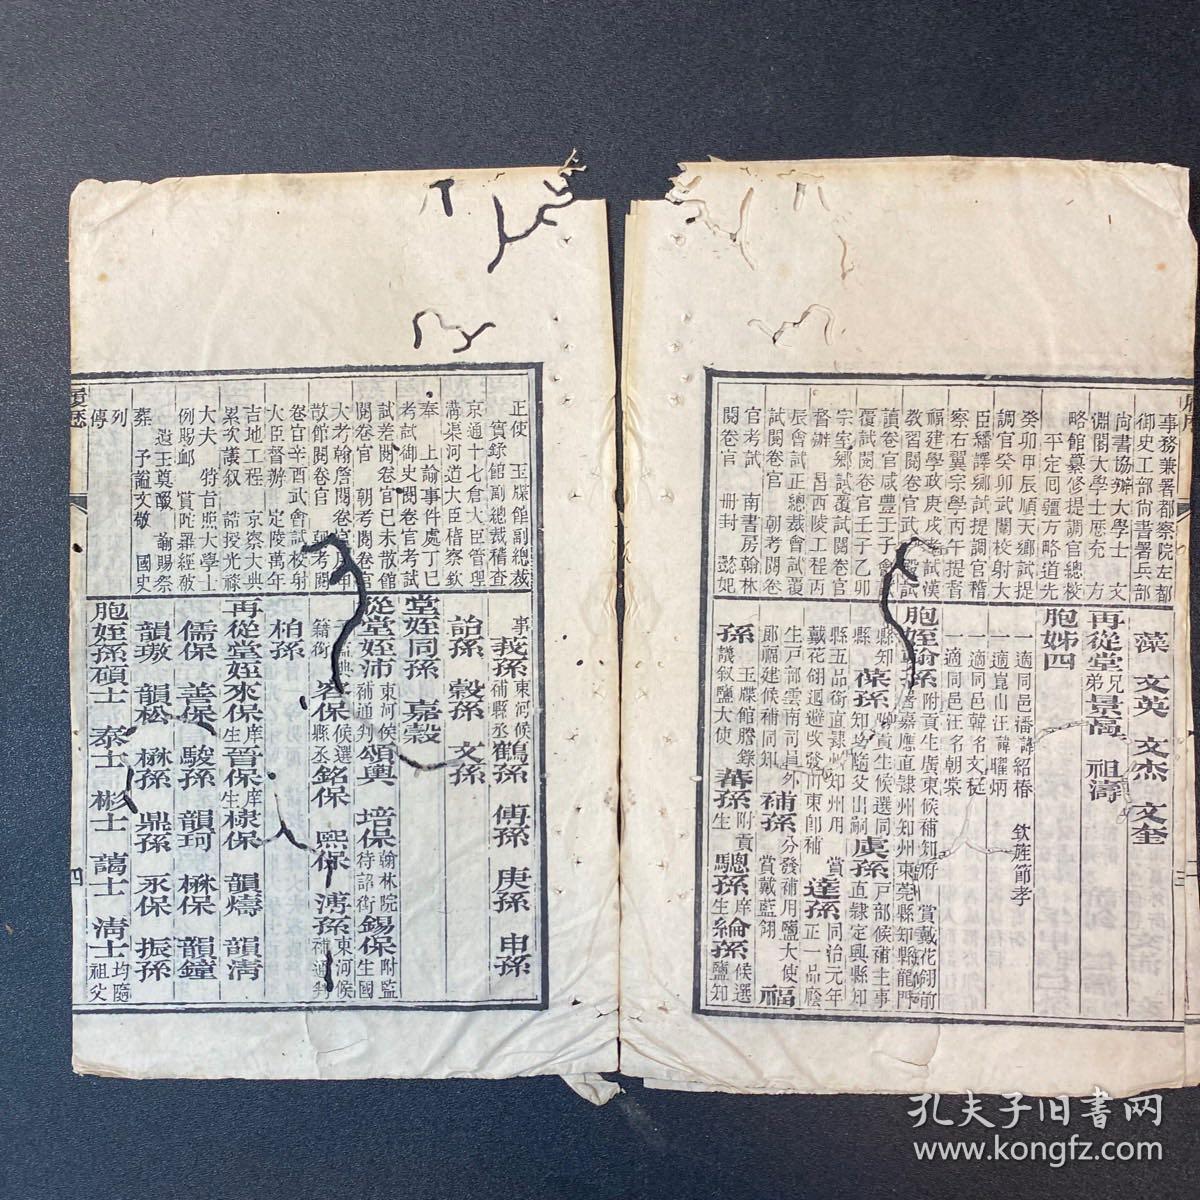 事務兼署都察院左都
御史工部尚書署兵部
尚書協辦大學士 文
淵閣大學士歷充 方
略館纂修提調官總校
平定回疆方略道光
癸卯甲辰順天鄉試提
調官癸卯武闈校射大
臣繙譯鄉試提調官稽
察右翼宗學丙午提督
福建學政庚戌考試漢
教習閱卷官武
讀卷官咸豐壬子會試
覆試閱卷官壬子乙卯
宗室鄉試覆試閱卷官
督辦 昌西陵工程丙
辰會試正總裁會試覆
試閱卷官 朝考閱卷
官考試 南書房翰林
閱卷官 冊封 懿妃
藻 文英 文杰 文奎
再從堂兄弟景高 祖濤
胞姊四
一適同邑潘諱紹椿 欽旌節孝
一適崑山汪諱曜炳
一適同邑韓名文𥳑
一適同邑汪名朝棨
胞姪翰孫附貢生廣東候補知府 賞戴花翎前
署嘉應直隸州知州東莞縣知縣龍門
縣知縣 葆孫貢生候選同知 庚孫戶部候補主事
直隸定興縣知
縣五品銜直隸州知州用 賞
戴花翎迴避收發河東即補 達孫正一品廕
生同治元年
生戶部雲南司員外 補孫分發補用鹽大使
郎福建候補同知 賞戴藍翎 福
孫議敘鹽大使 玉牒館謄錄 蕃孫附貢生 驄孫庠生 綸孫候選鹽知
正使 實錄館副總裁稽查
玉牒館副總裁
京通十七倉大臣管理
溝渠河道大臣稽察欽
奉上諭事件處丁巳
考試御史閱卷官考試
試差閱卷官己未散館
閱卷官 朝考閱卷官
大考翰詹閱卷官庚申
散館閱卷官 朝考閱
卷官辛酉武會試校射
大臣督辦 定陵萬年
吉地工程 京察大典
累次議敘 誥授光祿
大夫 特旨照大學士
例賜卹 賞陀羅經被
遣王奠醊 諭賜祭
葬 予謚文敬 國史
列傳
事 義孫東河候補縣丞 鶴孫 傅孫 庚孫 申孫
詒孫 穀孫 文孫
堂姪同孫 嘉穀
從堂姪沛東河候補通判 頌輿 培保翰林院待詔銜 錫保附監生國
史館謄錄籍銜 畧保候選縣丞 銘保 熙保 溥孫東河候補通判
柏孫
再從堂姪來保庠生 晉保庠生 棣保 韻濤 韻清
儒保 善保 駿孫 韻珂 楙保 韻鐘
韻璈 韻松 楙孫 鼎孫 永保 振孫
胞姪孫碩士 泰士 彬士 藹士 清士均隨祖父
四
孔夫子旧书网
www.kongfz.com